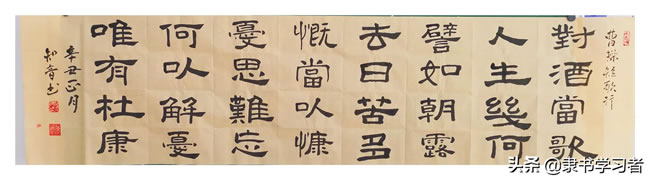 曹操短歌行
對酒當歌
人生幾何
譬如朝露
去日苦多
慨當以慷
憂思難忘
何以解憂
唯有杜康
辛丑正月
知音书
头条 @隶书学习者